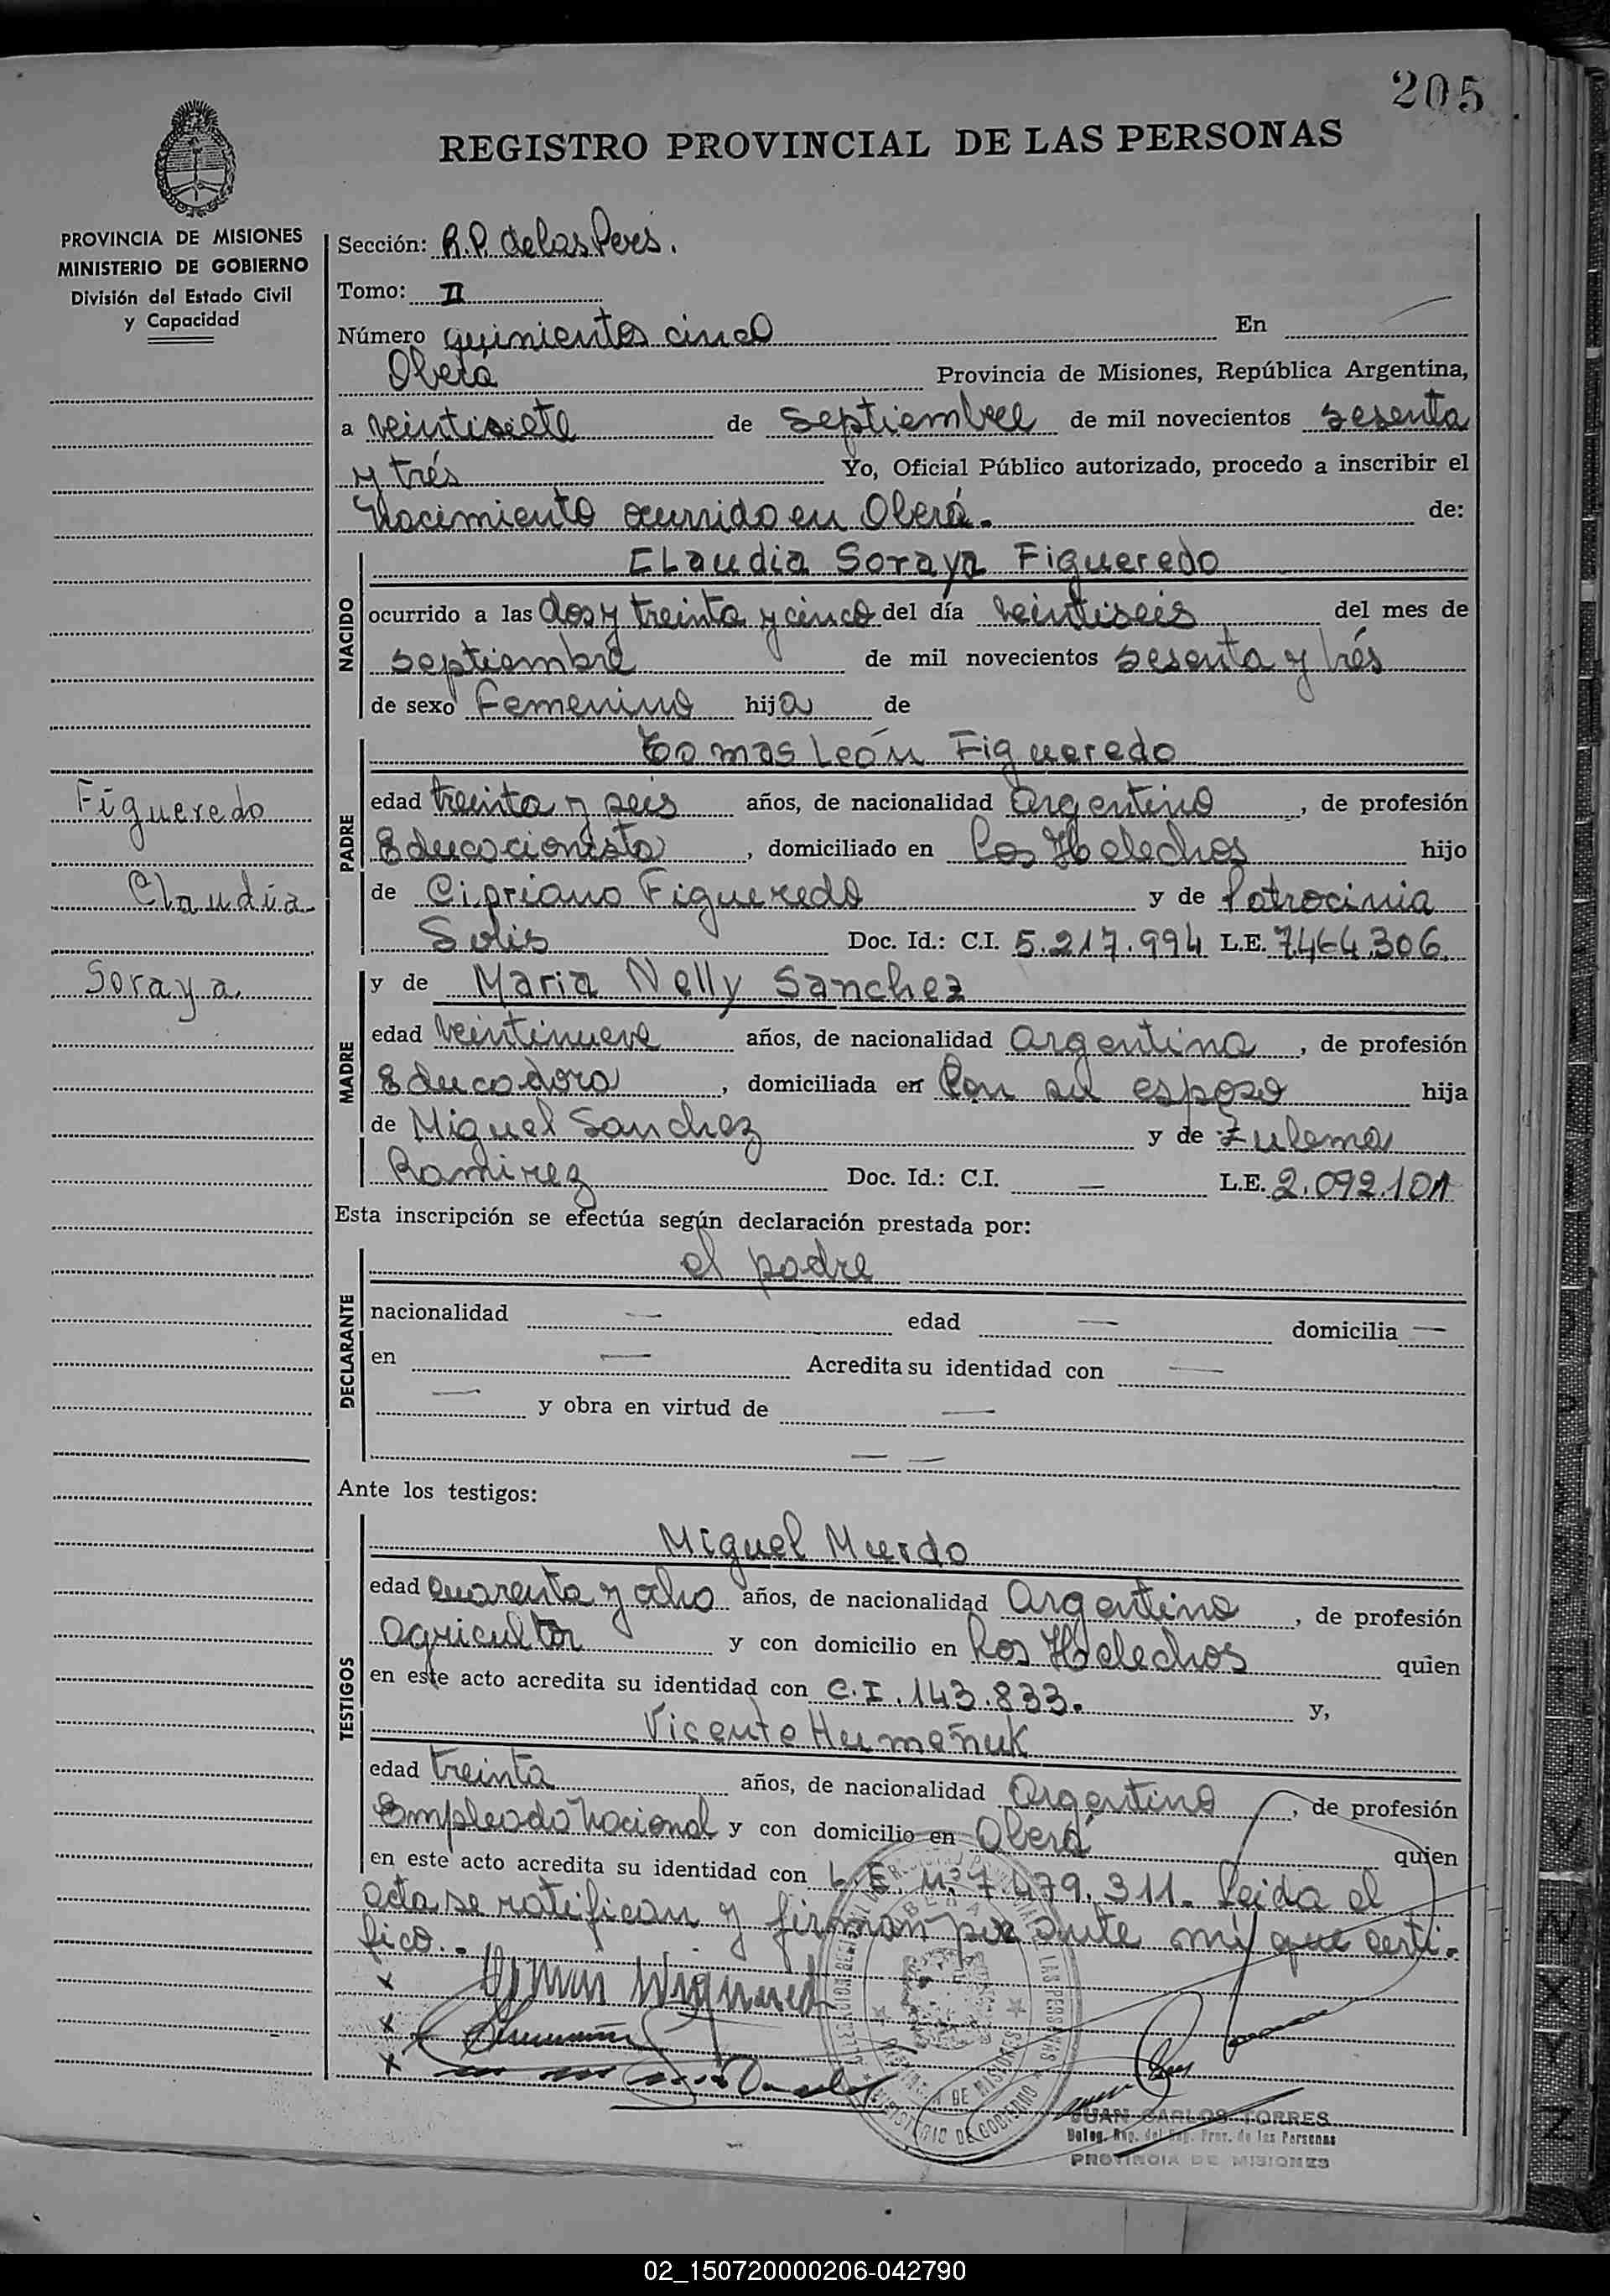 205
REGISTRO PROVINCIAL DE LAS PERSONAS
PROVINCIA DE MISIONES
MINISTERIO DE GOBIERNO
División del Estado Civil
y Capacidad
Figueredo
Claudia
Soraya
Sección: R.P. de las Pers.
Tomo: II
Número quinientos cinco En
Oberá Provincia de Misiones, República Argentina,
a veintisiete de septiembre de mil novecientos sesenta
y trés Yo, Oficial Público autorizado, procedo a inscribir el
Nacimiento ocurrido en Oberá. de:
NACIDO
Claudia Soraya Figueredo
ocurrido a las dos y treinta y cinco del día veintiseis del mes de
septiembre de mil novecientos sesenta y trés
de sexo Femenino hija de
PADRE
Tomas León Figueredo
edad treinta y seis años, de nacionalidad Argentino, de profesión
Educacionista, domiciliado en Los Helechos hijo
de Cipriano Figueredo y de Patrocinia
Solis Doc. Id.: C.I. 5.217.994 L.E. 7.464.306.
MADRE
y de Maria Nelly Sanchez
edad veintinueve años, de nacionalidad Argentina, de profesión
Educadora, domiciliada en Con su esposo hija
de Miguel Sanchez y de Zulema
Ramirez Doc. Id.: C.I. — L.E. 2.092.101
Esta inscripción se efectúa según declaración prestada por:
DECLARANTE
el padre
nacionalidad — edad — domicilia —
en — Acredita su identidad con —
— y obra en virtud de —
— —
Ante los testigos:
TESTIGOS
Miguel Murdo
edad cuarenta y ocho años, de nacionalidad Argentino, de profesión
agricultor y con domicilio en Los Helechos quien
en este acto acredita su identidad con C.I. 143.833. y,
Vicente Humeñuk
edad treinta años, de nacionalidad Argentino, de profesión
Empleado Nacional y con domicilio en Oberá quien
en este acto acredita su identidad con L.E. Nº 7.479.311. Leida el
acta se ratifican y firman por ante mí que certi-
fico..
x
x
x
MINISTERIO DE GOBIERNO
JUAN CARLOS TORRES
Deleg. Reg. del Reg. Prov. de las Personas
PROVINCIA DE MISIONES
02_150720000206-042790